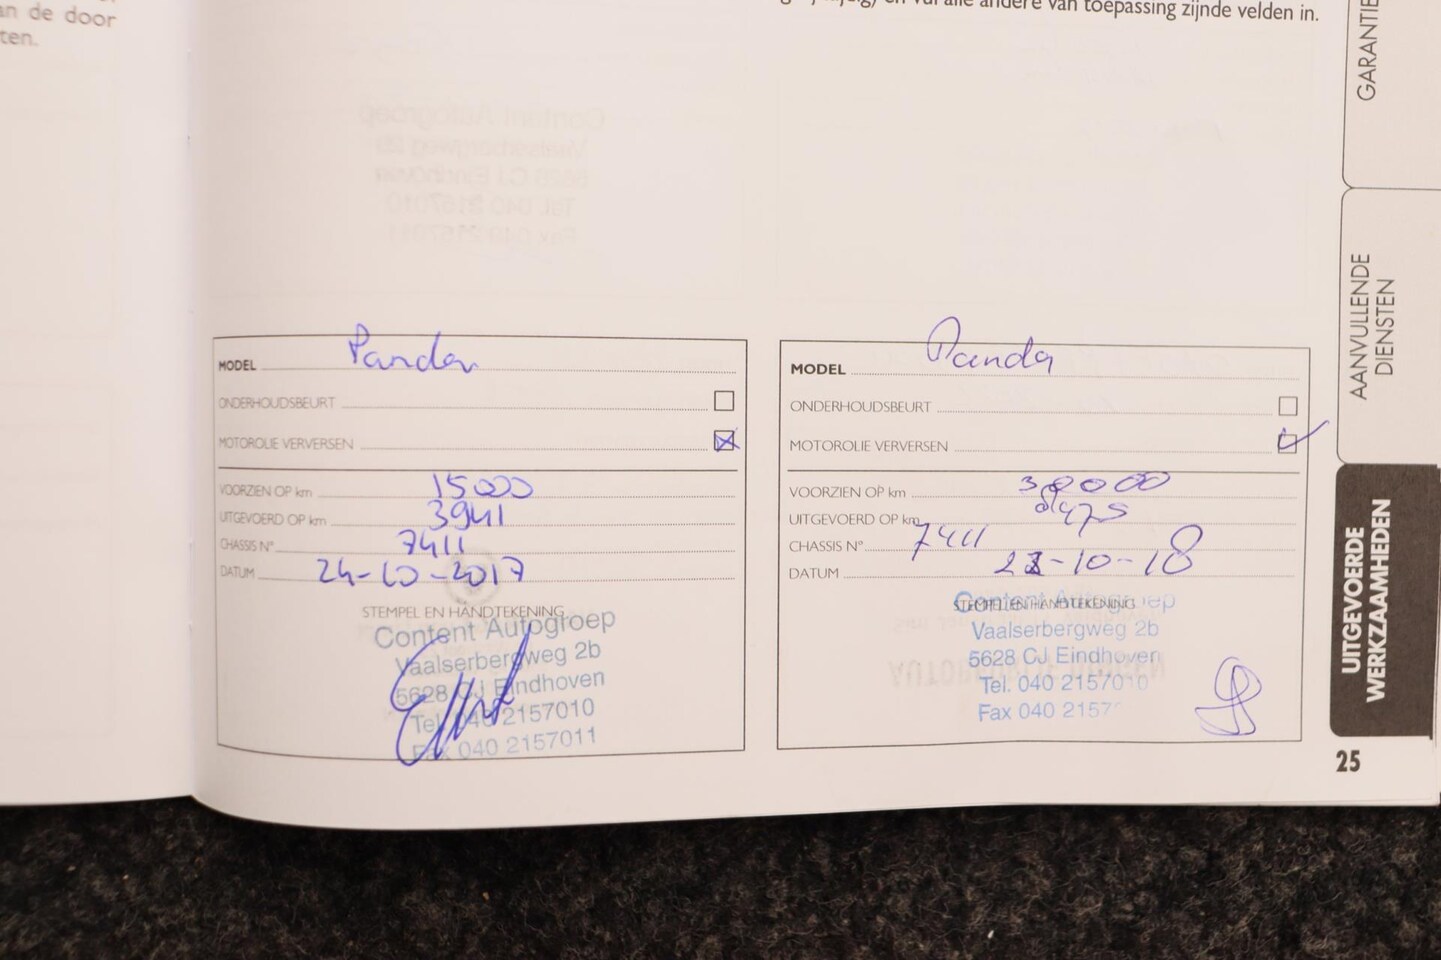 an de door
ten.
en vul alle andere van toepassing zijnde velden in.
MODEL Panda
ONDERHOUDSBEURT
MOTOROLIE VERVERSEN
VOORZIEN OP km 15000
UITGEVOERD OP km 3941
CHASSIS N° 7411
DATUM 24-10-2017
STEMPEL EN HANDTEKENING
Content Autogroep
Vaalserbergweg 2b
5628 CJ Eindhoven
Tel. 040 2157010
Fax 040 2157011
MODEL Panda
ONDERHOUDSBEURT
MOTOROLIE VERVERSEN
VOORZIEN OP km 30000
UITGEVOERD OP km
CHASSIS N° 7411
DATUM
STEMPEL EN HANDTEKENING
Content Autogroep
Vaalserbergweg 2b
5628 CJ Eindhoven
Tel. 040 2157010
Fax 040 2157
GARANTIE
AANVULLENDE
DIENSTEN
UITGEVOERDE
WERKZAAMHEDEN
25